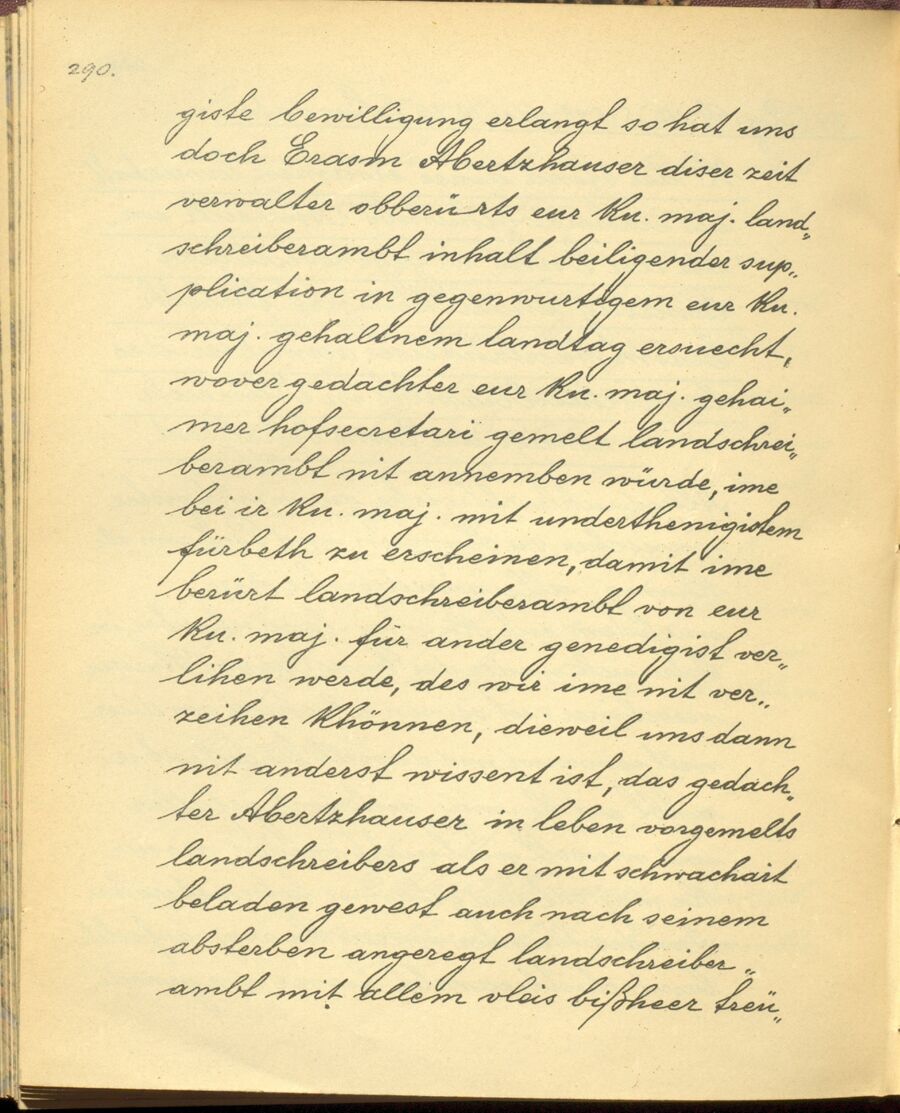 290.
giste bewilligung erlangt so hat uns
doch Erasm Abertzhauser diser zeit
verwalter obberürts eur ku. maj. land„
schreiberambt inhalt beiligender sup„
plication in gegenwurtigem eur ku.
maj. gehaltnem landtag ersuecht,
wover gedachter eur ku. maj. gehai„
mer hofsecretari gemelt landschrei„
berambt nit annemben würde, ime
bei ir ku. maj. mit underthenigistem
fürbeth zu erscheinen, damit ime
berürt landschreiberambt von eur
ku. maj. für ander genedigist ver„
lihen werde, des wir ime nit ver„
zeihen khönnen, dieweil uns dann
nit anderst wissent ist, das gedach„
ter Abertzhauser in leben vorgemelts
landschreibers als er mit schwachait
beladen gewest auch nach seinem
absterben angeregt landschreiber„
ambt mit allem vleis bißheer treü„